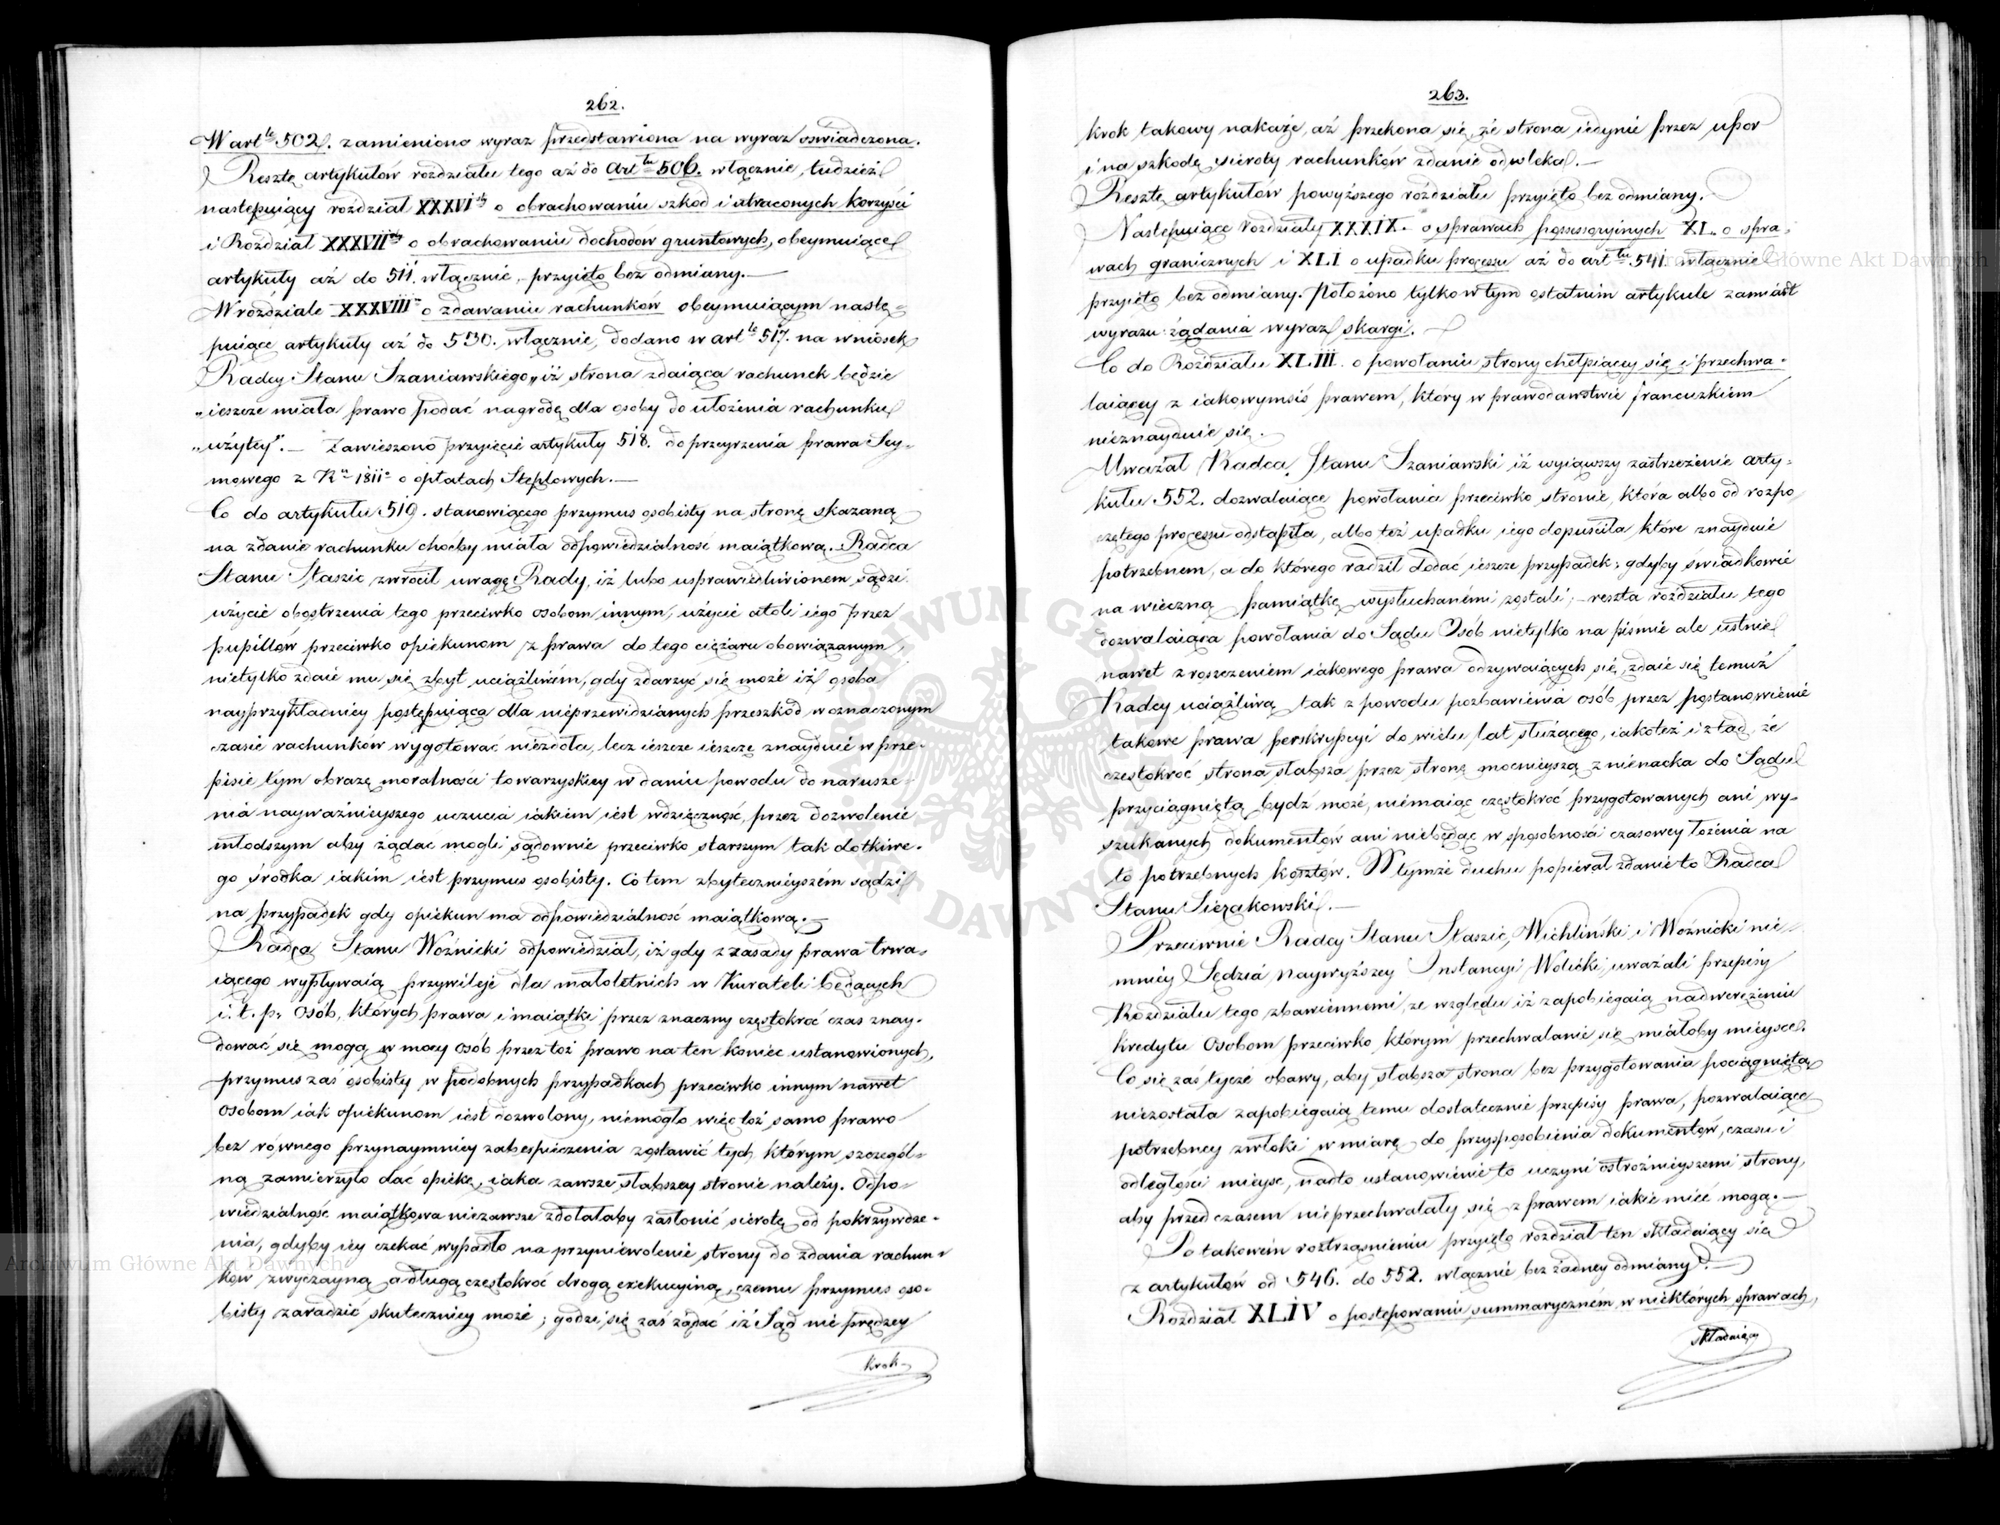 262.
W art<sup>le</sup> 502. zamieniono wyraz przedstawiona na wyraz oświadczona.
Resztę artykułów rozdziału tego aż do art<sup>łu</sup> 506. włącznie, tudzież
następuiący rozdział XXXVI<sup>sty</sup> o obrachowaniu szkód i utraconych korzyści
i Rozdział XXXVII<sup>my</sup> o obrachowaniu dochodów gruntowych, obeymuiące
artykuły aż do 511. włącznie, przyięto bez odmiany.—
W rozdziale XXXVIII<sup>m</sup> o zdawaniu rachunków obeymuiącym nastę-
puiące artykuły aż do 530. włącznie, dodano w art<sup>le</sup> 517. na wniosek
Radcy Stanu Szaniawskiego „iż strona zdaiąca rachunek będzie
„ieszcze miała prawo podać nagrodę dla osoby do ułożenia rachunku
„użytey".— Zawieszono przyięcie artykułu 518. do przeyrzenia prawa Sey-
mowego z R<sup>u</sup> 1811<sup>o</sup> o opłatach Steplowych.—
Co do artykułu 519. stanowiącego przymus osobisty na stronę skazaną
na zdanie rachunku choćby miała odpowiedzialność maiątkową. Radca
Stanu Staszic zwrócił uwagę Rady, iż lubo usprawiedliwionem sądzi
użycie obostrzenia tego przeciwko osobom innym, użycie atoli iego przez
pupillów przeciwko opiekunom z prawa do tego ciężaru obowiązanym,
nietylko zdaie mu się zbyt uciążliwém, gdy zdarzyć się może iż osoba
nayprzykładniey postępuiąca dla nieprzewidzianych przeszkód w oznaczonym
czasie rachunków wygotować niezdoła, lecz ieszcze ieszcze znayduie w prze-
pisie tym obrazę moralności towarzyskiey w daniu powodu do narusze-
nia nayważnieyszego uczucia iakiem iest wdzięczność, przez dozwolenie
młodszym aby żądać mogli sądownie przeciwko starszym tak dotkliwe-
go środka iakim iest przymus osobisty. Co tem zbytecznieyszém sądzi
na przypadek gdy opiekun ma odpowiedzialność maiątkową.—
Radca Stanu Woźnicki odpowiedział, iż gdy z zasady prawa trwa-
iącego wypływaią przywileje dla małoletnich w Kurateli będących
i. t. p. Osób, których prawa i maiątki przez znaczny częstokroć czas znay-
dować się mogą w mocy osób przez toż prawo na ten koniec ustanowionych,
przymus zaś osobisty w podobnych przypadkach przeciwko innym nawet
Osobom iak opiekunom iest dozwolony, niemogło więc toż samo prawo
bez równego przynaymniey zabespieczenia zostawić tych, którym szczegól-
ną zamierzyło dać opiekę, iaka zawsze słabszey stronie należy. Odpo-
wiedzialność maiątkowa niezawsze zdołałaby zasłonić sierotę od pokrzywdze-
nia, gdyby iey czekać wypadło na przyniewolenie strony do zdania rachun-
ków zwyczayną a długą częstokroć drogą exekucyiną, czemu przymus oso-
bisty zaradzić skuteczniey może; godzi się zaś żądać iż Sąd nie prędzey
krok
263.
krok takowy nakaże, aż przekona się, że strona iedynie przez upor
i na szkodę sieroty rachunków zdanie odwleka.—
Resztę artykułów powyższego rozdziału przyięto bez odmiany.
Następuiące rozdziały XXXIX. o sprawach possessoryinych XL. o spra-
wach granicznych i XLI o upadku processu aż do art<sup>łu</sup> 541. włącznie
przyięto bez odmiany. Położono tylko w tym ostatnim artykule zamiast
wyrazu: żądania wyraz skargi.—
Co do Rozdziału XLIII. o powołaniu strony chełpiącey się i przechwa-
laiącey z iakowymsiś prawem, który w prawodawstwie francuzkiem
nieznayduie się.
Uważał Radca Stanu Szaniawski iż wyiąwszy zastrzeżenie arty-
kułu 552. dozwalaiące powołania przeciwko stronie, która albo od rozpo-
czętego processu odstąpiła, albo też upadku iego dopuściła które znayduie
potrzebnem, a do którego radził dodać ieszcze przypadek; gdyby świadkowie
na wieczną pamiątkę wysłuchanemi zostali;— reszta rozdziału tego
dozwalaiąca powołania do Sądu Osób nietylko na piśmie ale ustnie
nawet z roszczeniem iakowego prawa odzywaiących się, zdaie się temuż
Radcy uciążliwą tak z powodu pozbawienia osób przez postanowienie
takowe prawa perskrypcyi do wielu lat służącego, iakoteż i ztąd, że
częstokroć strona słabsza przez stronę mocnieyszą znienacka do Sądu
przyciągniętą bydź może, niemaiąc częstokroć przygotowanych ani wy-
szukanych dokumentów ani niebędąc w sposobności czasowey łożenia na
to potrzebnych kosztów. W tymże duchu popierał zdanie to Radca
Stanu Sierakowski.—
Przeciwnie Radcy Stanu Staszic, Wichliński i Woźnicki nie-
mniey Sędzia naywyższey Instancyi Wolicki, uważali przepisy
Rozdziału tego zbawiennemi, ze względu iż zapobiegaią nadwerężeniu
kredytu Osobom przeciwko którym przechwalanie się miałoby mieysce.
Co się zaś tycze obawy, aby słabsza strona bez przygotowania pociągniętą
niezostała zapobiegaią temu dostatecznie przepisy prawa, pozwalaiące
potrzebney zwłoki w miarę do przysposobienia dokumentów, czasu i
odległości mieysc, nadto ustanowienie to uczyni ostrożnieyszemi strony,
aby przed czasem nieprzechwalały się z prawem iakie mieć mogą.—
Po takowém roztrząśnieniu przyięto rozdział ten składaiący się
z artykułów od 546. do 552. włącznie bez żadney odmiany.—
Rozdział XLIV o postępowaniu summaryczném w niektórych sprawach,
składaiący